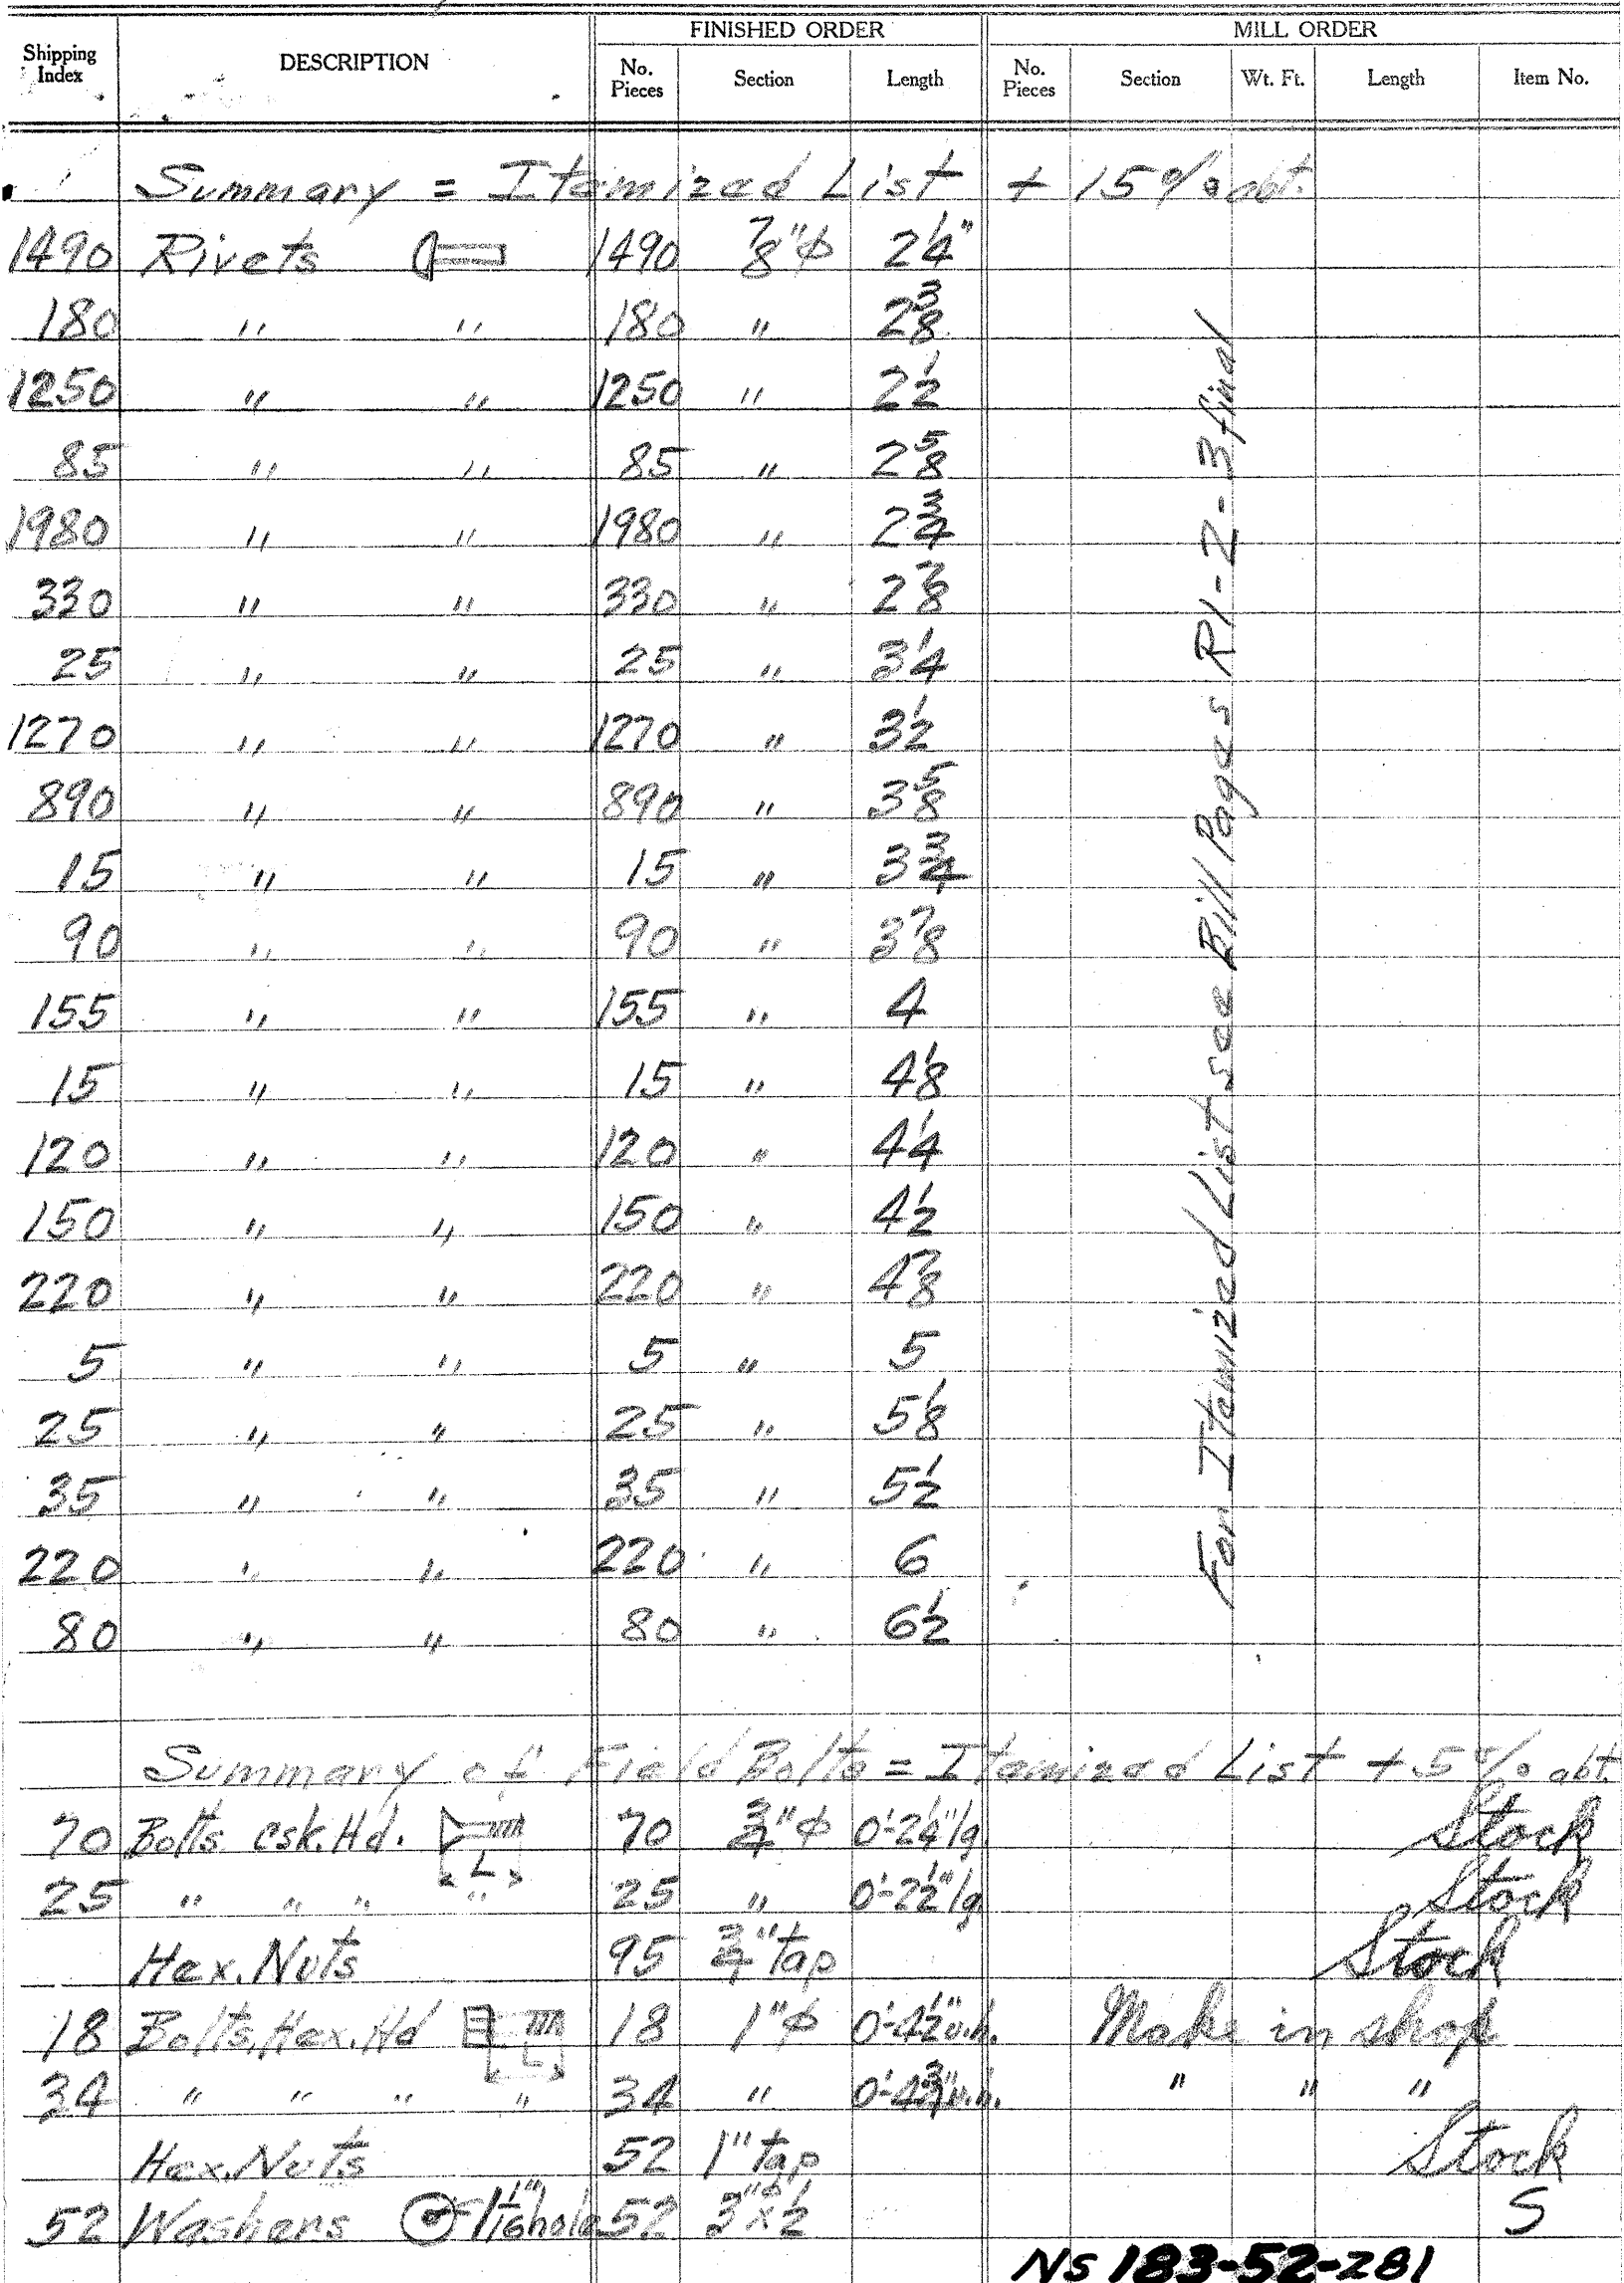 FINISHED ORDER MILL ORDER
Shipping Index DESCRIPTION No. Pieces Section Length No. Pieces Section Wt. Ft. Length Item No.
Summary = Itemized List + 15% abt.
1490 Rivets 1490 7/8"φ 2 1/4"
180 " " 180 " 2 3/8
1250 " " 1250 " 2 1/2
85 " " 85 " 2 5/8
1980 " " 1980 " 2 3/4
330 " " 330 " 2 7/8
25 " " 25 " 3 1/4
1270 " " 1270 " 3 1/2
890 " " 890 " 3 5/8
15 " " 15 " 3 3/4
90 " " 90 " 3 7/8
155 " " 155 " 4
15 " " 15 " 4 1/8
120 " " 120 " 4 1/4
150 " " 150 " 4 1/2
220 " " 220 " 4 7/8
5 " " 5 " 5
25 " " 25 " 5 1/8
35 " " 35 " 5 1/2
220 " " 220 " 6
80 " " 80 " 6 1/2
For Itemized List see Bill Pages R1-2-3 final
Summary of Field Bolts = Itemized List + 5% abt.
70 Bolts csk. Hd. 70 3/4"φ 0'-2 1/4"lg. Stock
L
25 " " " " 25 " 0'-2 1/2"lg. Stock
Hex. Nuts 95 3/4" tap Stock
18 Bolts, Hex. Hd 18 1"φ 0'-4 1/2"u.h. Make in shop
L
34 " " " " 34 " 0'-4 3/4"u.h. " " "
Hex. Nuts 52 1" tap Stock
52 Washers 1 1/16" hole 52 3"φ x 1/2 S
NS 183-52-281